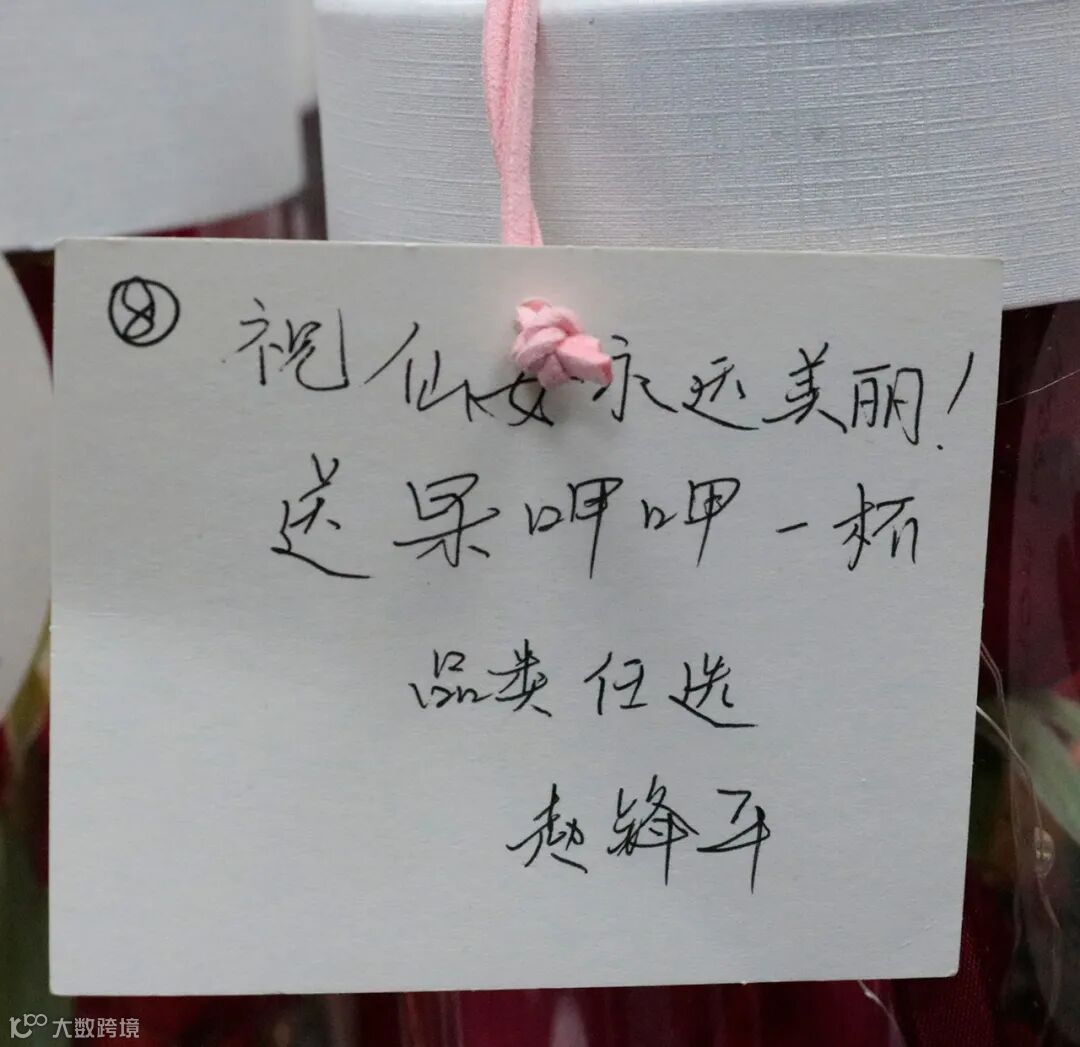 ⑧ 祝仙女永远美丽！
送果呷呷一杯
品类任选
赵锋军
大数跨境